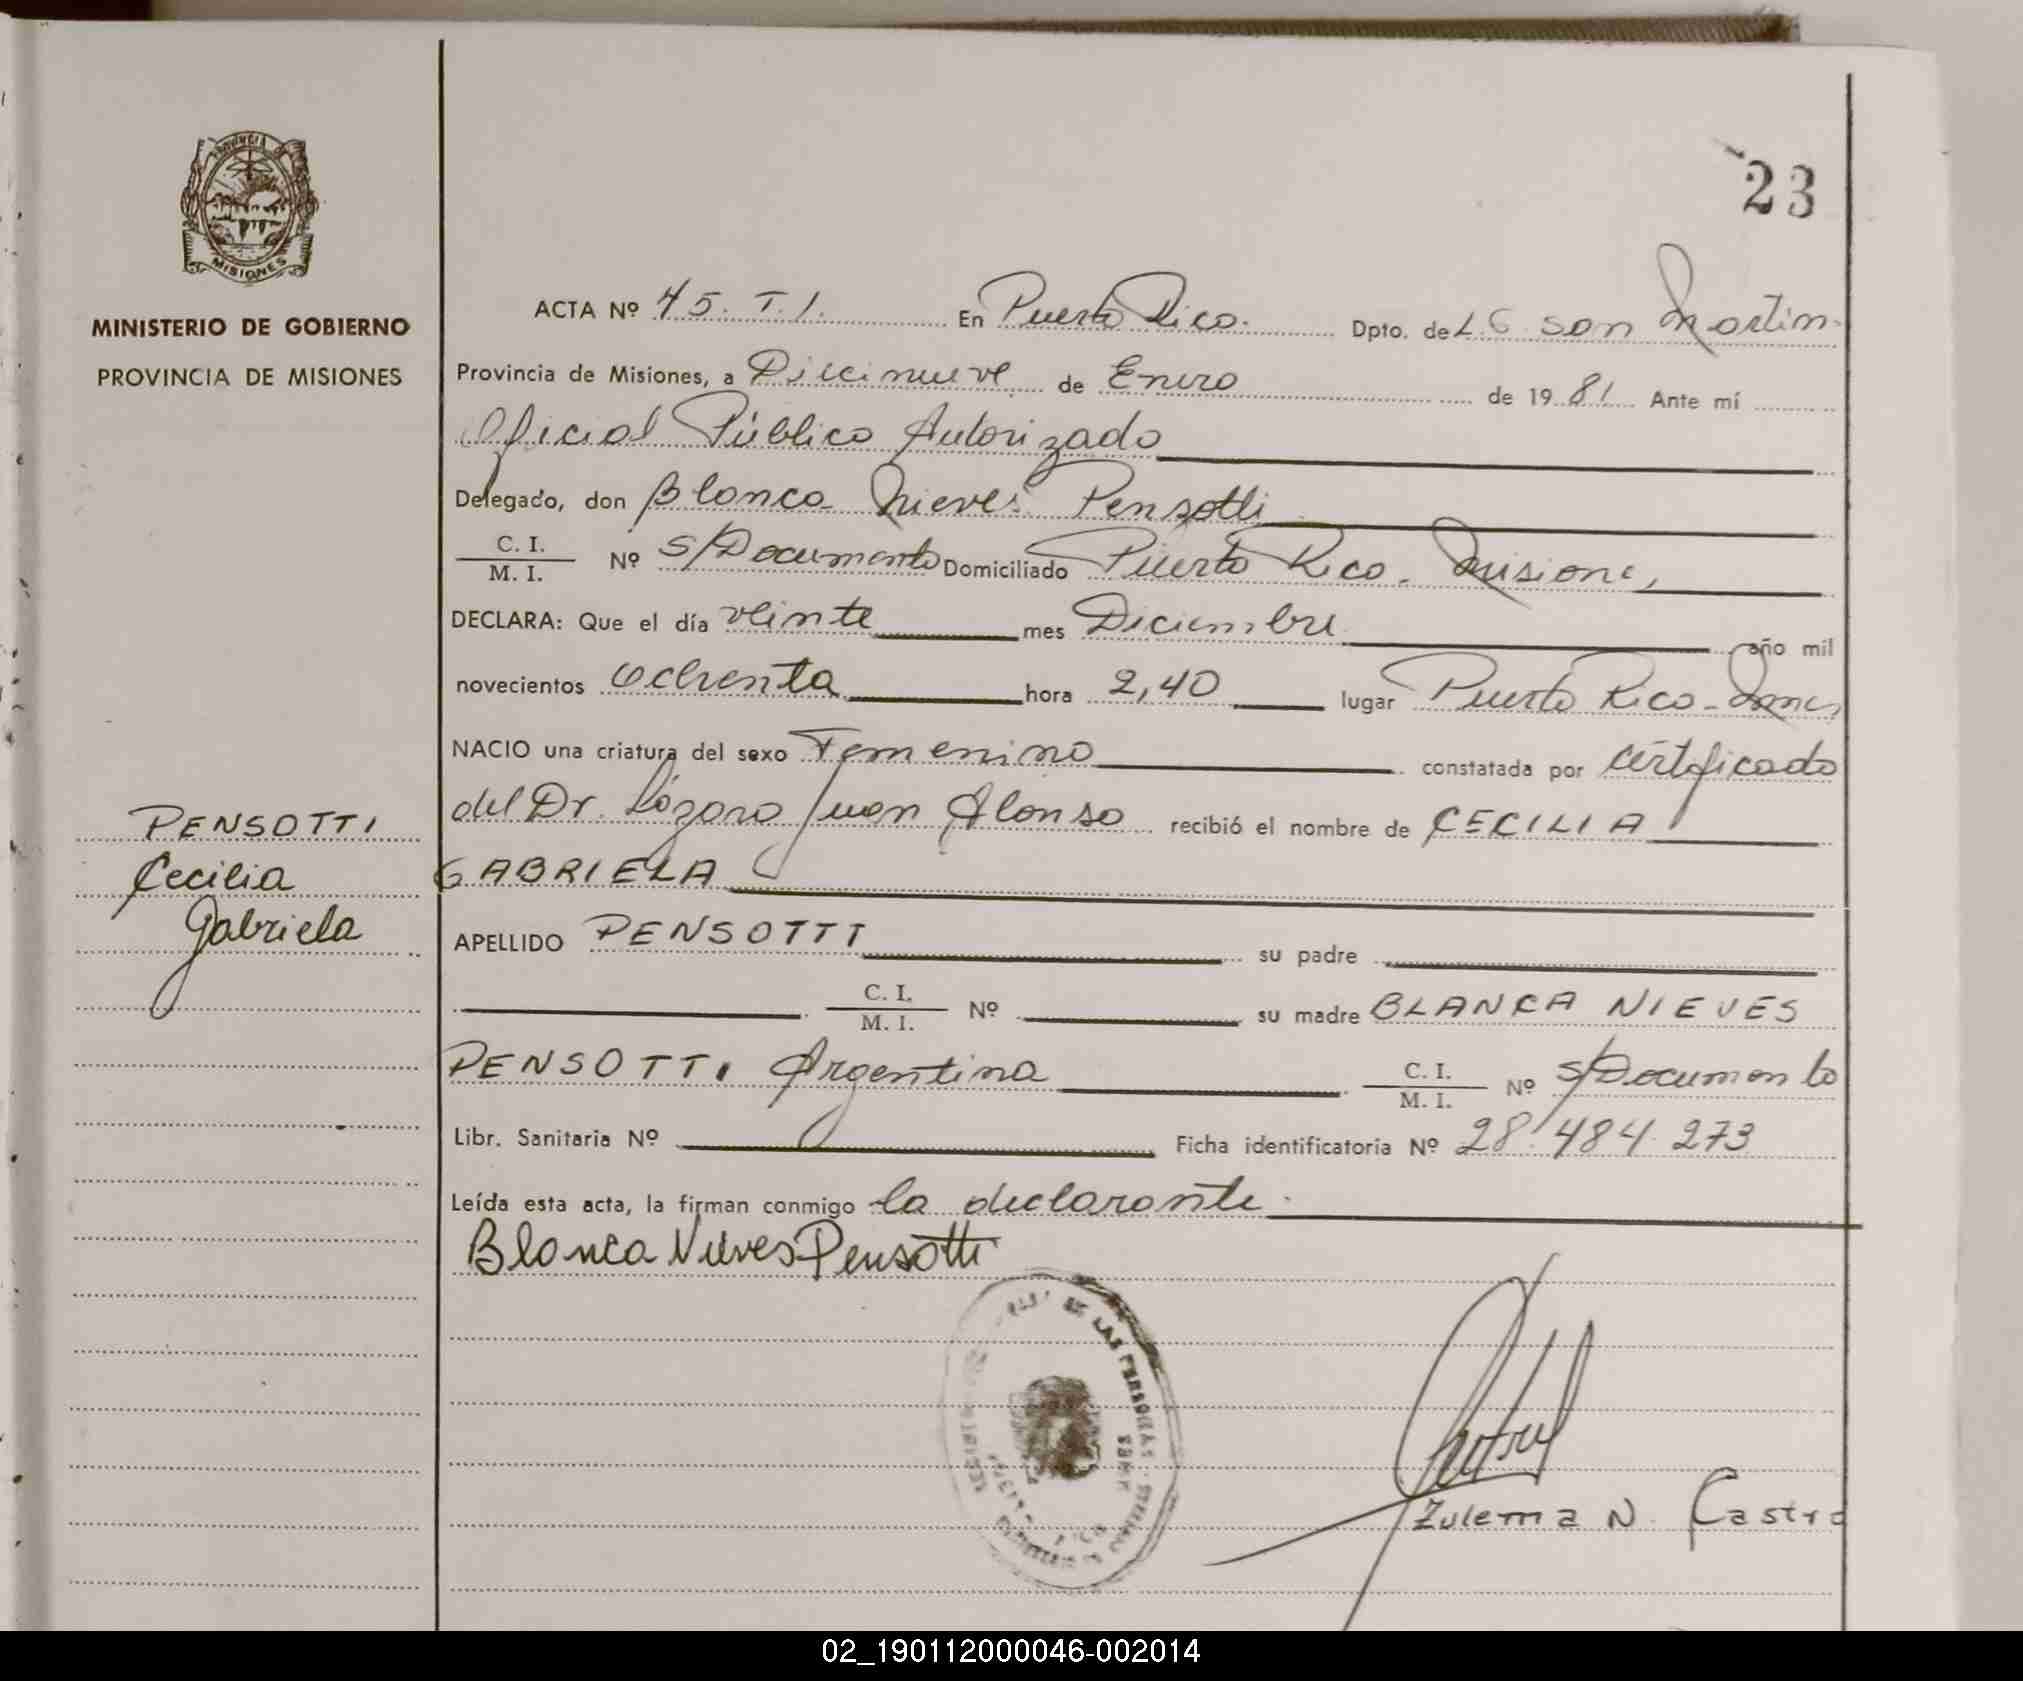 23
PROVINCIA DE
MISIONES
MINISTERIO DE GOBIERNO
PROVINCIA DE MISIONES
PENSOTTI
Cecilia
Gabriela
ACTA Nº 45. T. I. En Puerto Rico. Dpto. de L. G. San Martin.
Provincia de Misiones, a Diecinueve de Enero de 1981 Ante mí
Oficial Público Autorizado
Delegado, don Blanca Nieves Pensotti
C. I.
M. I. Nº S/Documento Domiciliado Puerto Rico. Misiones
DECLARA: Que el día veinte mes Diciembre año mil
novecientos ochenta hora 2,40 lugar Puerto Rico - Mnes
NACIO una criatura del sexo Femenino constatada por certificado
del Dr. Lázaro Juan Alonso recibió el nombre de CECILIA
GABRIELA
APELLIDO PENSOTTI su padre
C. I.
M. I. Nº su madre BLANCA NIEVES
PENSOTTI Argentina C. I.
M. I. Nº S/Documento
Libr. Sanitaria Nº Ficha identificatoria Nº 28.484.273
Leída esta acta, la firman conmigo la declarante.
Blanca Nieves Pensotti
DE LAS PERSONAS
Zulema N. Castro
02_190112000046-002014